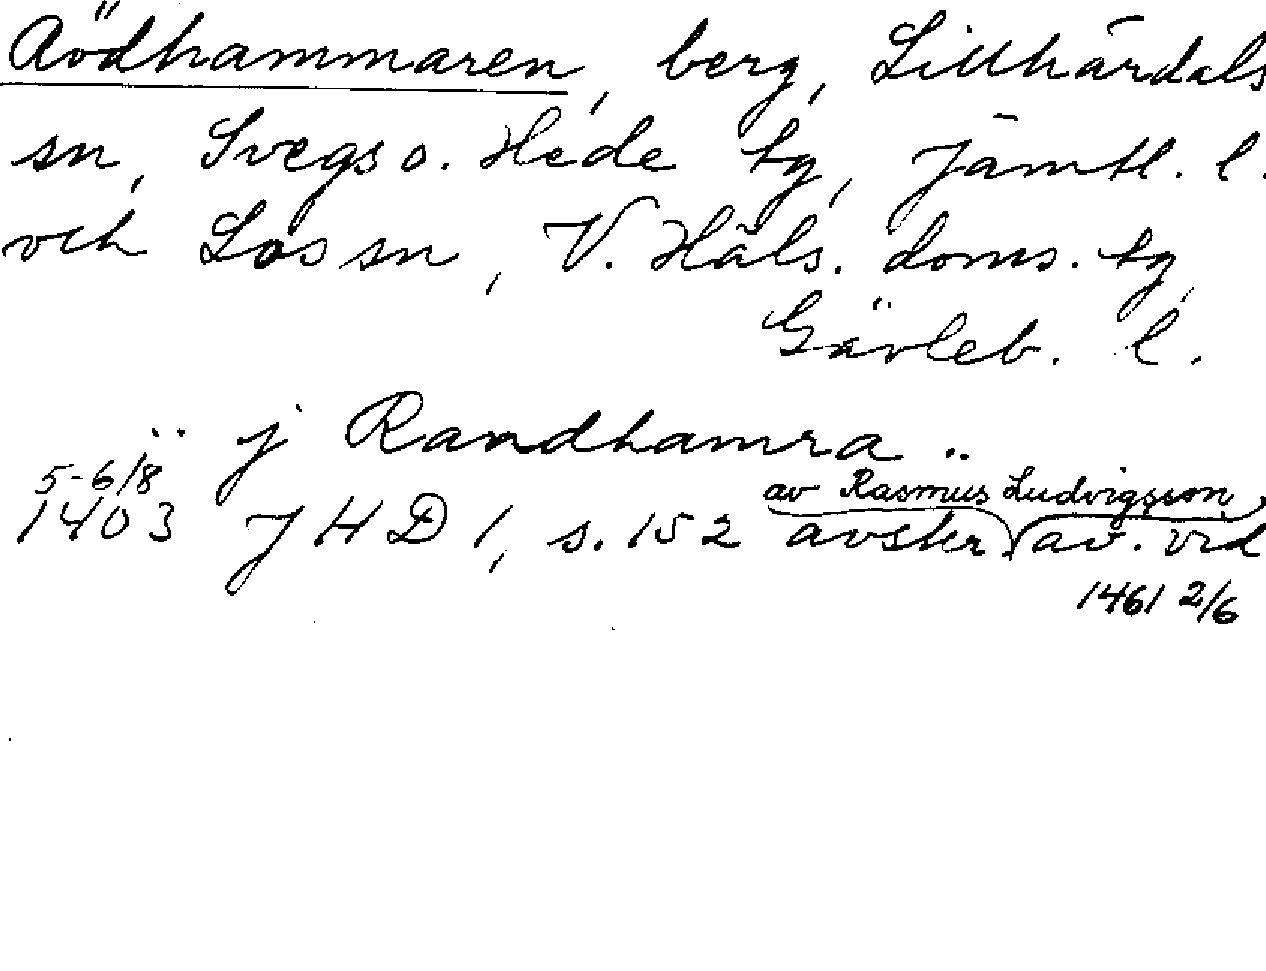 Rödhammaren, berg, Lillhärdals
sn, Svegs o. Hede tg, Jämtl. l.
och Los sn, V. Häls. doms. tg,
Gävleb. l.
.. j Randhamra ..
5-6/8
1403 JHD 1, s. 152 avskr. av Rasmus Ludvigsson, av. vid
1461 2/6